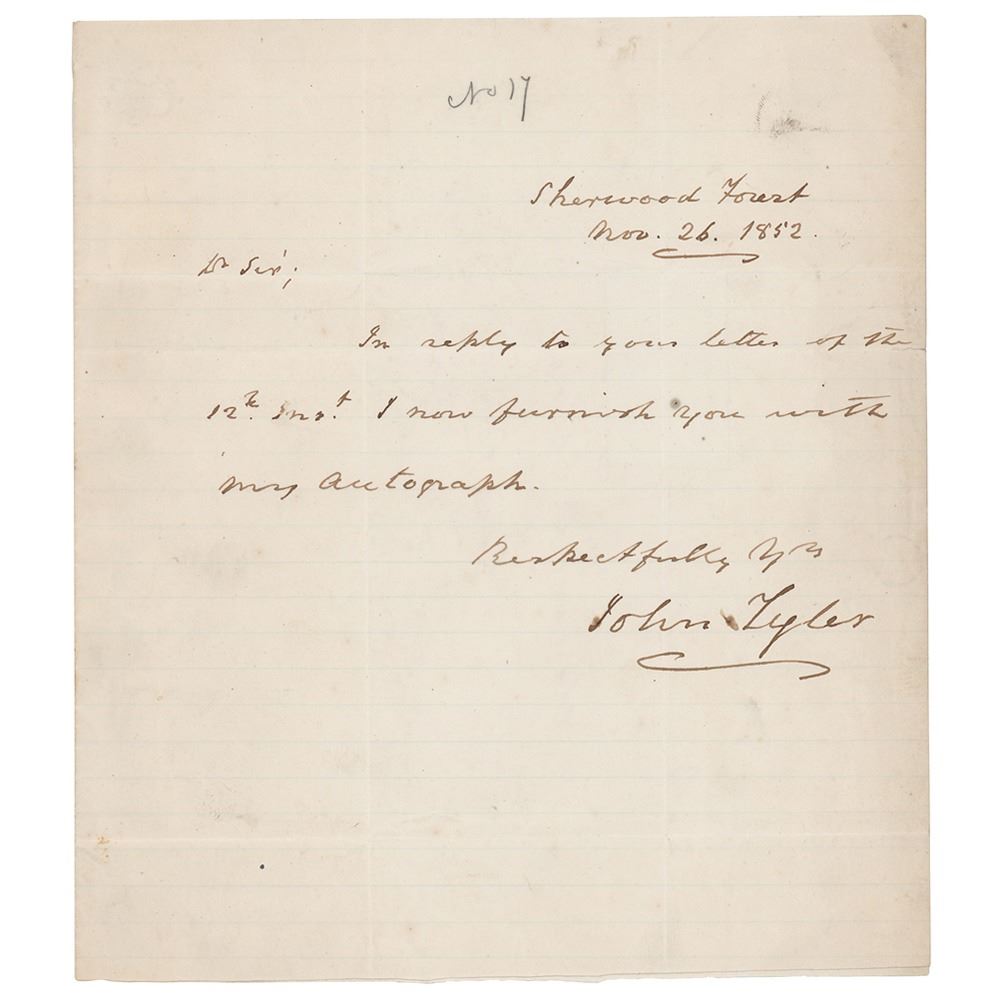 No 17
Sherwood Forest
Nov. 26. 1852.
Dr Sir;
In reply to your letter of the
12th Inst. I now furnish you with
my Autograph.
Respectfully Yrs
John Tyler